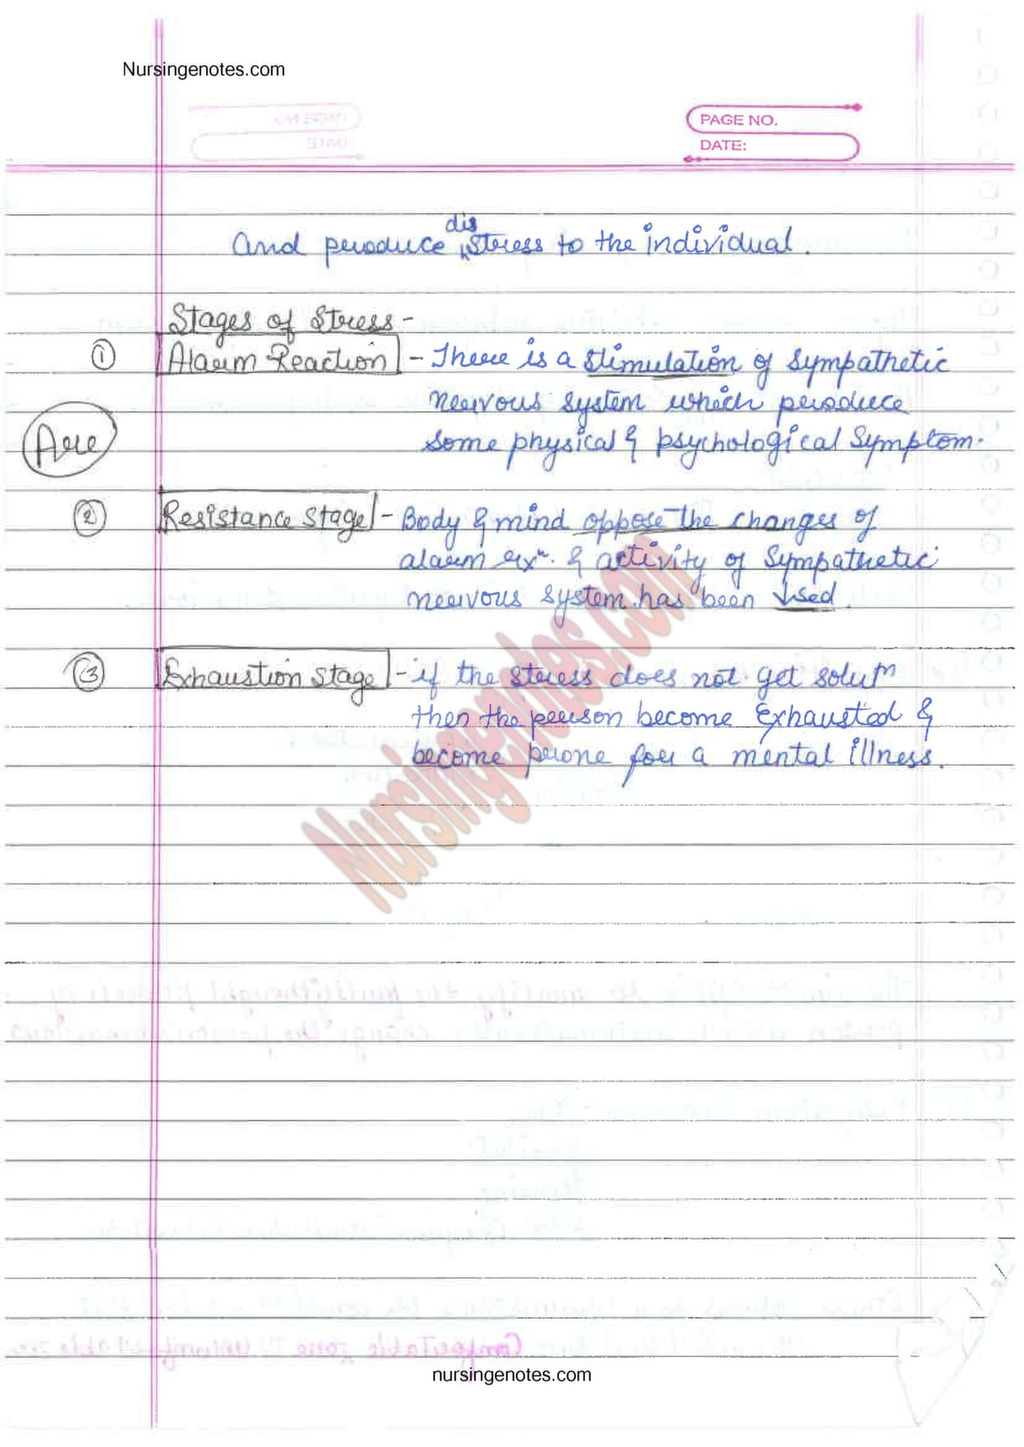 Nursingenotes.com
PAGE NO.
DATE:
and produce distress to the individual.
Stages of Stress -
① Alarm Reaction - There is a stimulation of sympathetic
nervous system which produce
Some physical & psychological Symptom.
Are
② Resistance Stage - Body & mind oppose the changes of
alarm rxⁿ. & activity of Sympathetic
nervous system has been ↓sed.
③ Exhaustion stage - if the stress does not get solutⁿ
then the person become Exhausted &
become prone for a mental illness.
Nursingenotes.com
nursingenotes.com